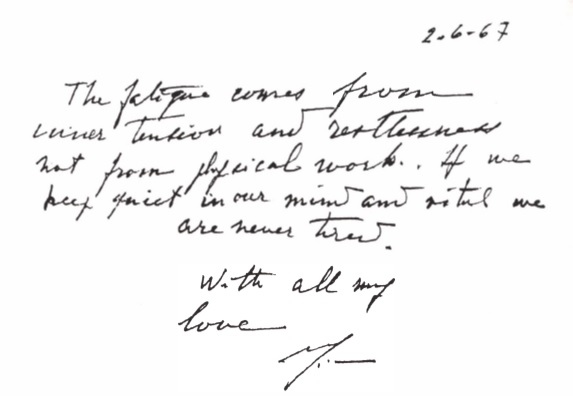 2-6-67
The fatigue comes from
inner tension and restlessness
not from physical work.. If we
keep quiet in our mind and vital we
are never tired.
With all my
love